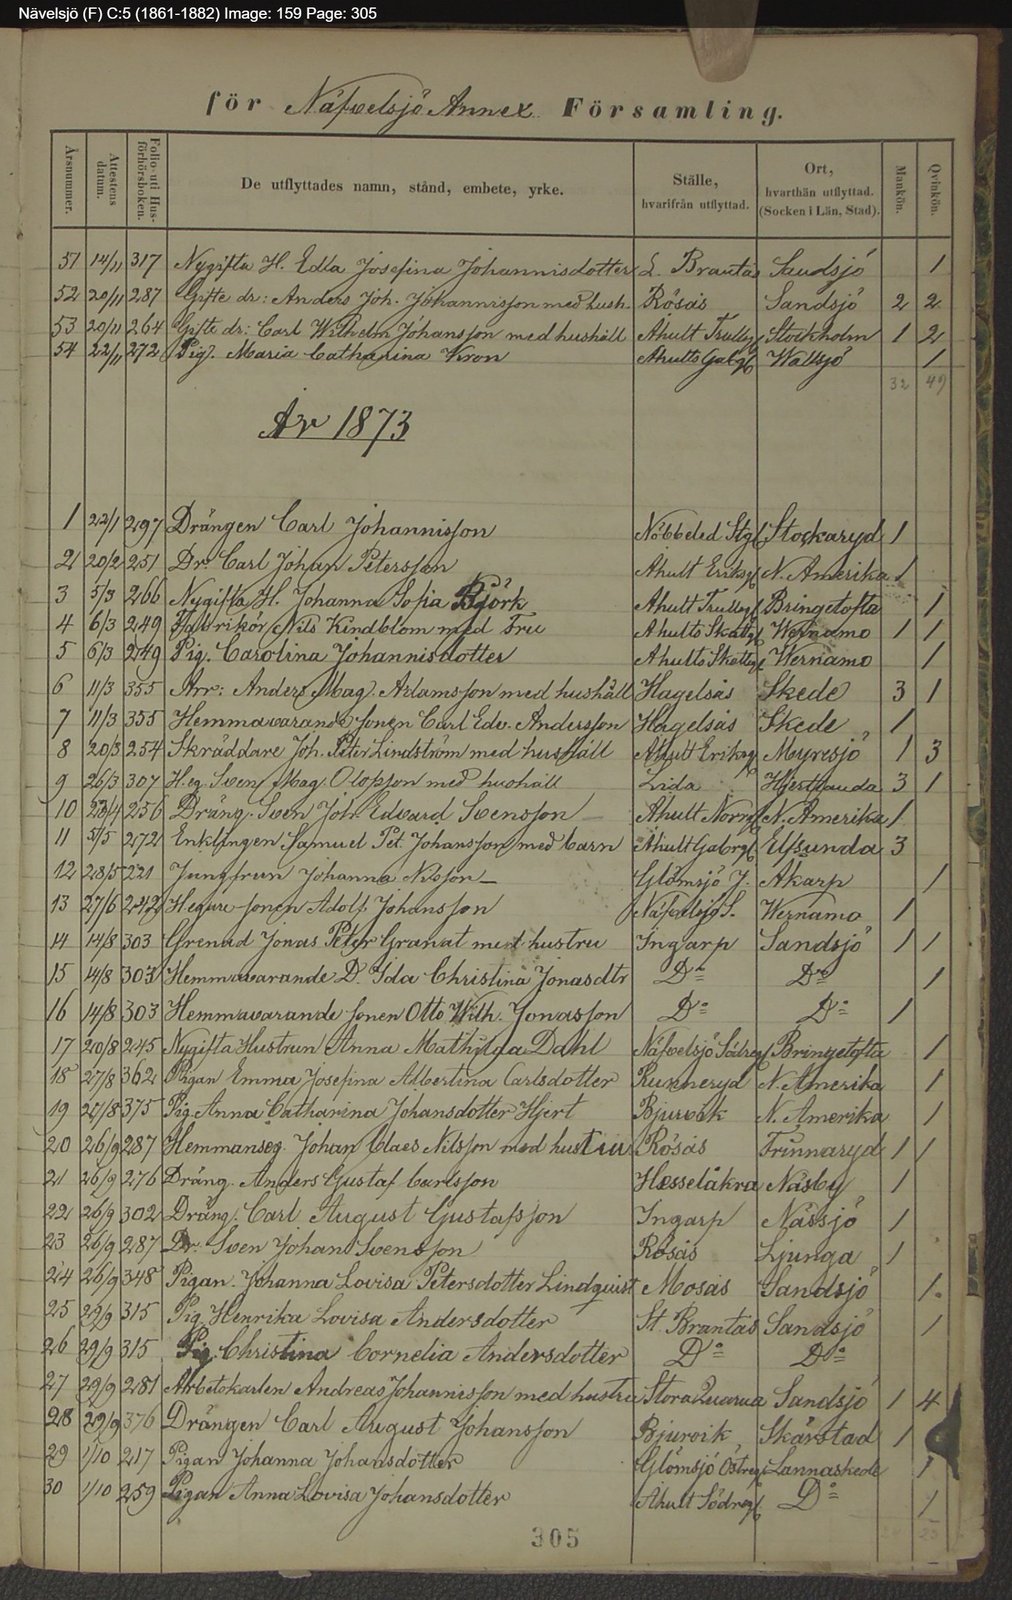 Nävelsjö (F) C:5 (1861-1882) Image: 159 Page: 305
för Näfvelsjö Annex Församling.
Årsnummer. Attestens datum. Folio uti Husförhörsboken. De utflyttades namn, stånd, embete, yrke. Ställe, hvarifrån utflyttad. Ort, hvarthän utflyttad. (Socken i Län, Stad). Mankön. Qvinkön.
51 14/11 317 Nygifta H. Edla Josefina Johannisdotter L. Brantås Sandsjö 1
52 20/11 287 Gifte dr: Anders Joh. Johannisson med hush. Rösås Sandsjö 2 2
53 20/11 264 Gifte dr: Carl Wilhelm Johansson med hushåll Åhult Trullsg Stockholm 1 2
54 22/11 272 Pig. Maria Catharina Kron Åhults Gabrg Wallsjö 1
32 49
År 1873
1 22/1 297 Drängen Carl Johannisson Nöbbeled Stg Stockaryd 1
2 20/2 251 Dr. Carl Johan Petersson Åhult Eriksg N. Amerika 1
3 5/3 266 Nygifta H. Johanna Sofia Björk Åhult Trullsg Bringetofta 1
4 6/3 249 Fabrikör Nils Kindblom med Fru Åhults Skattg Wernamo 1 1
5 6/3 249 Pig. Carolina Johannisdotter Åhults Skattg Wernamo 1
6 11/3 355 Arr: Anders Mag. Adamsson med hushåll Hagelsås Skede 3 1
7 11/3 355 Hemmavarande Sonen Carl Edv. Andersson Hagelsås Skede 1
8 20/3 254 Skräddare Joh. Peter Lindström med hushåll Åhult Eriksg Myresjö 1 3
9 26/3 307 H.eg. Sven Mag. Olofsson med hushåll Lida Hjertlanda 3 1
10 23/4 256 Dräng. Sven Joh. Edvard Svensson Åhult Norrg N. Amerika 1
11 5/5 272 Enklingen Samuel Pet. Johansson med barn Åhult Gabrg Elfsunda 3
12 28/5 221 Jungfrun Johanna Nilsson Glömsjö J. Akarp 1
13 27/6 242 Hegare Sonen Adolf Johansson Näfvelsjö S. Wernamo 1
14 14/8 303 Grenad Jonas Peter Granat med hustru Ingarp Sandsjö 1 1
15 14/8 303 Hemmavarande D. Ida Christina Jonasdtr Do Do 1
16 14/8 303 Hemmavarande Sonen Otto Wilh. Jonasson Do Do 1
17 20/8 245 Nygifta Hustrun Anna Mathilda Dahl Näfvelsjö Södreg Bringetofta 1
18 27/8 362 Pigan Emma Josefina Albertina Carlsdotter Runneryd N. Amerika 1
19 27/8 375 Pig. Anna Catharina Johansdotter Hjert Bjurvik N. Amerika 1
20 26/9 287 Hemmanseg. Johan Claes Nilsson med hustru Rösås Frinnaryd 1 1
21 26/9 276 Dräng. Anders Gustaf Carlsson Hesselåkra Näsby 1
22 26/9 302 Dräng. Carl August Gustafsson Ingarp Nässjö 1
23 26/9 287 Dr. Sven Johan Svensson Rösås Ljunga 1
24 26/9 348 Pigan Johanna Lovisa Petersdotter Lindquist Mosås Sandsjö 1
25 29/9 315 Pig. Henrika Lovisa Andersdotter St. Brantås Sandsjö 1
26 29/9 315 Pig. Christina Cornelia Andersdotter Do Do
27 29/9 281 Arbetskarlen Andreas Johannisson med hustru Stora Quarna Sandsjö 1 4
28 29/9 376 Drängen Carl August Johansson Bjurvik Skärstad 1
29 1/10 217 Pigan Johanna Johansdotter Glömsjö Östreg Lannaskede 1
30 1/10 259 Pigan Anna Lovisa Johansdotter Åhult Södreg Do 1
305